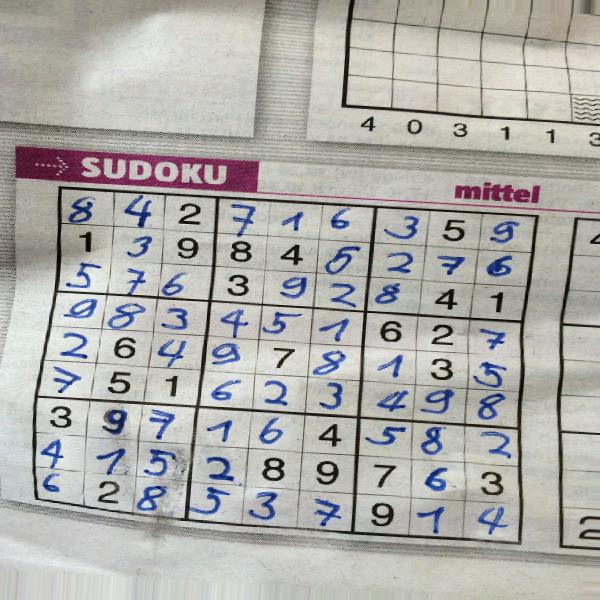 4 0 3 1 1 3
SUDOKU
mittel
8 4 2 7 1 6 3 5 9
1 3 9 8 4 5 2 7 6
5 7 6 3 9 2 8 4 1
9 8 3 4 5 1 6 2 7
2 6 4 9 7 8 1 3 5
7 5 1 6 2 3 4 9 8
3 9 7 1 6 4 5 8 2
4 1 5 2 8 9 7 6 3
6 2 8 5 3 7 9 1 4
4
2